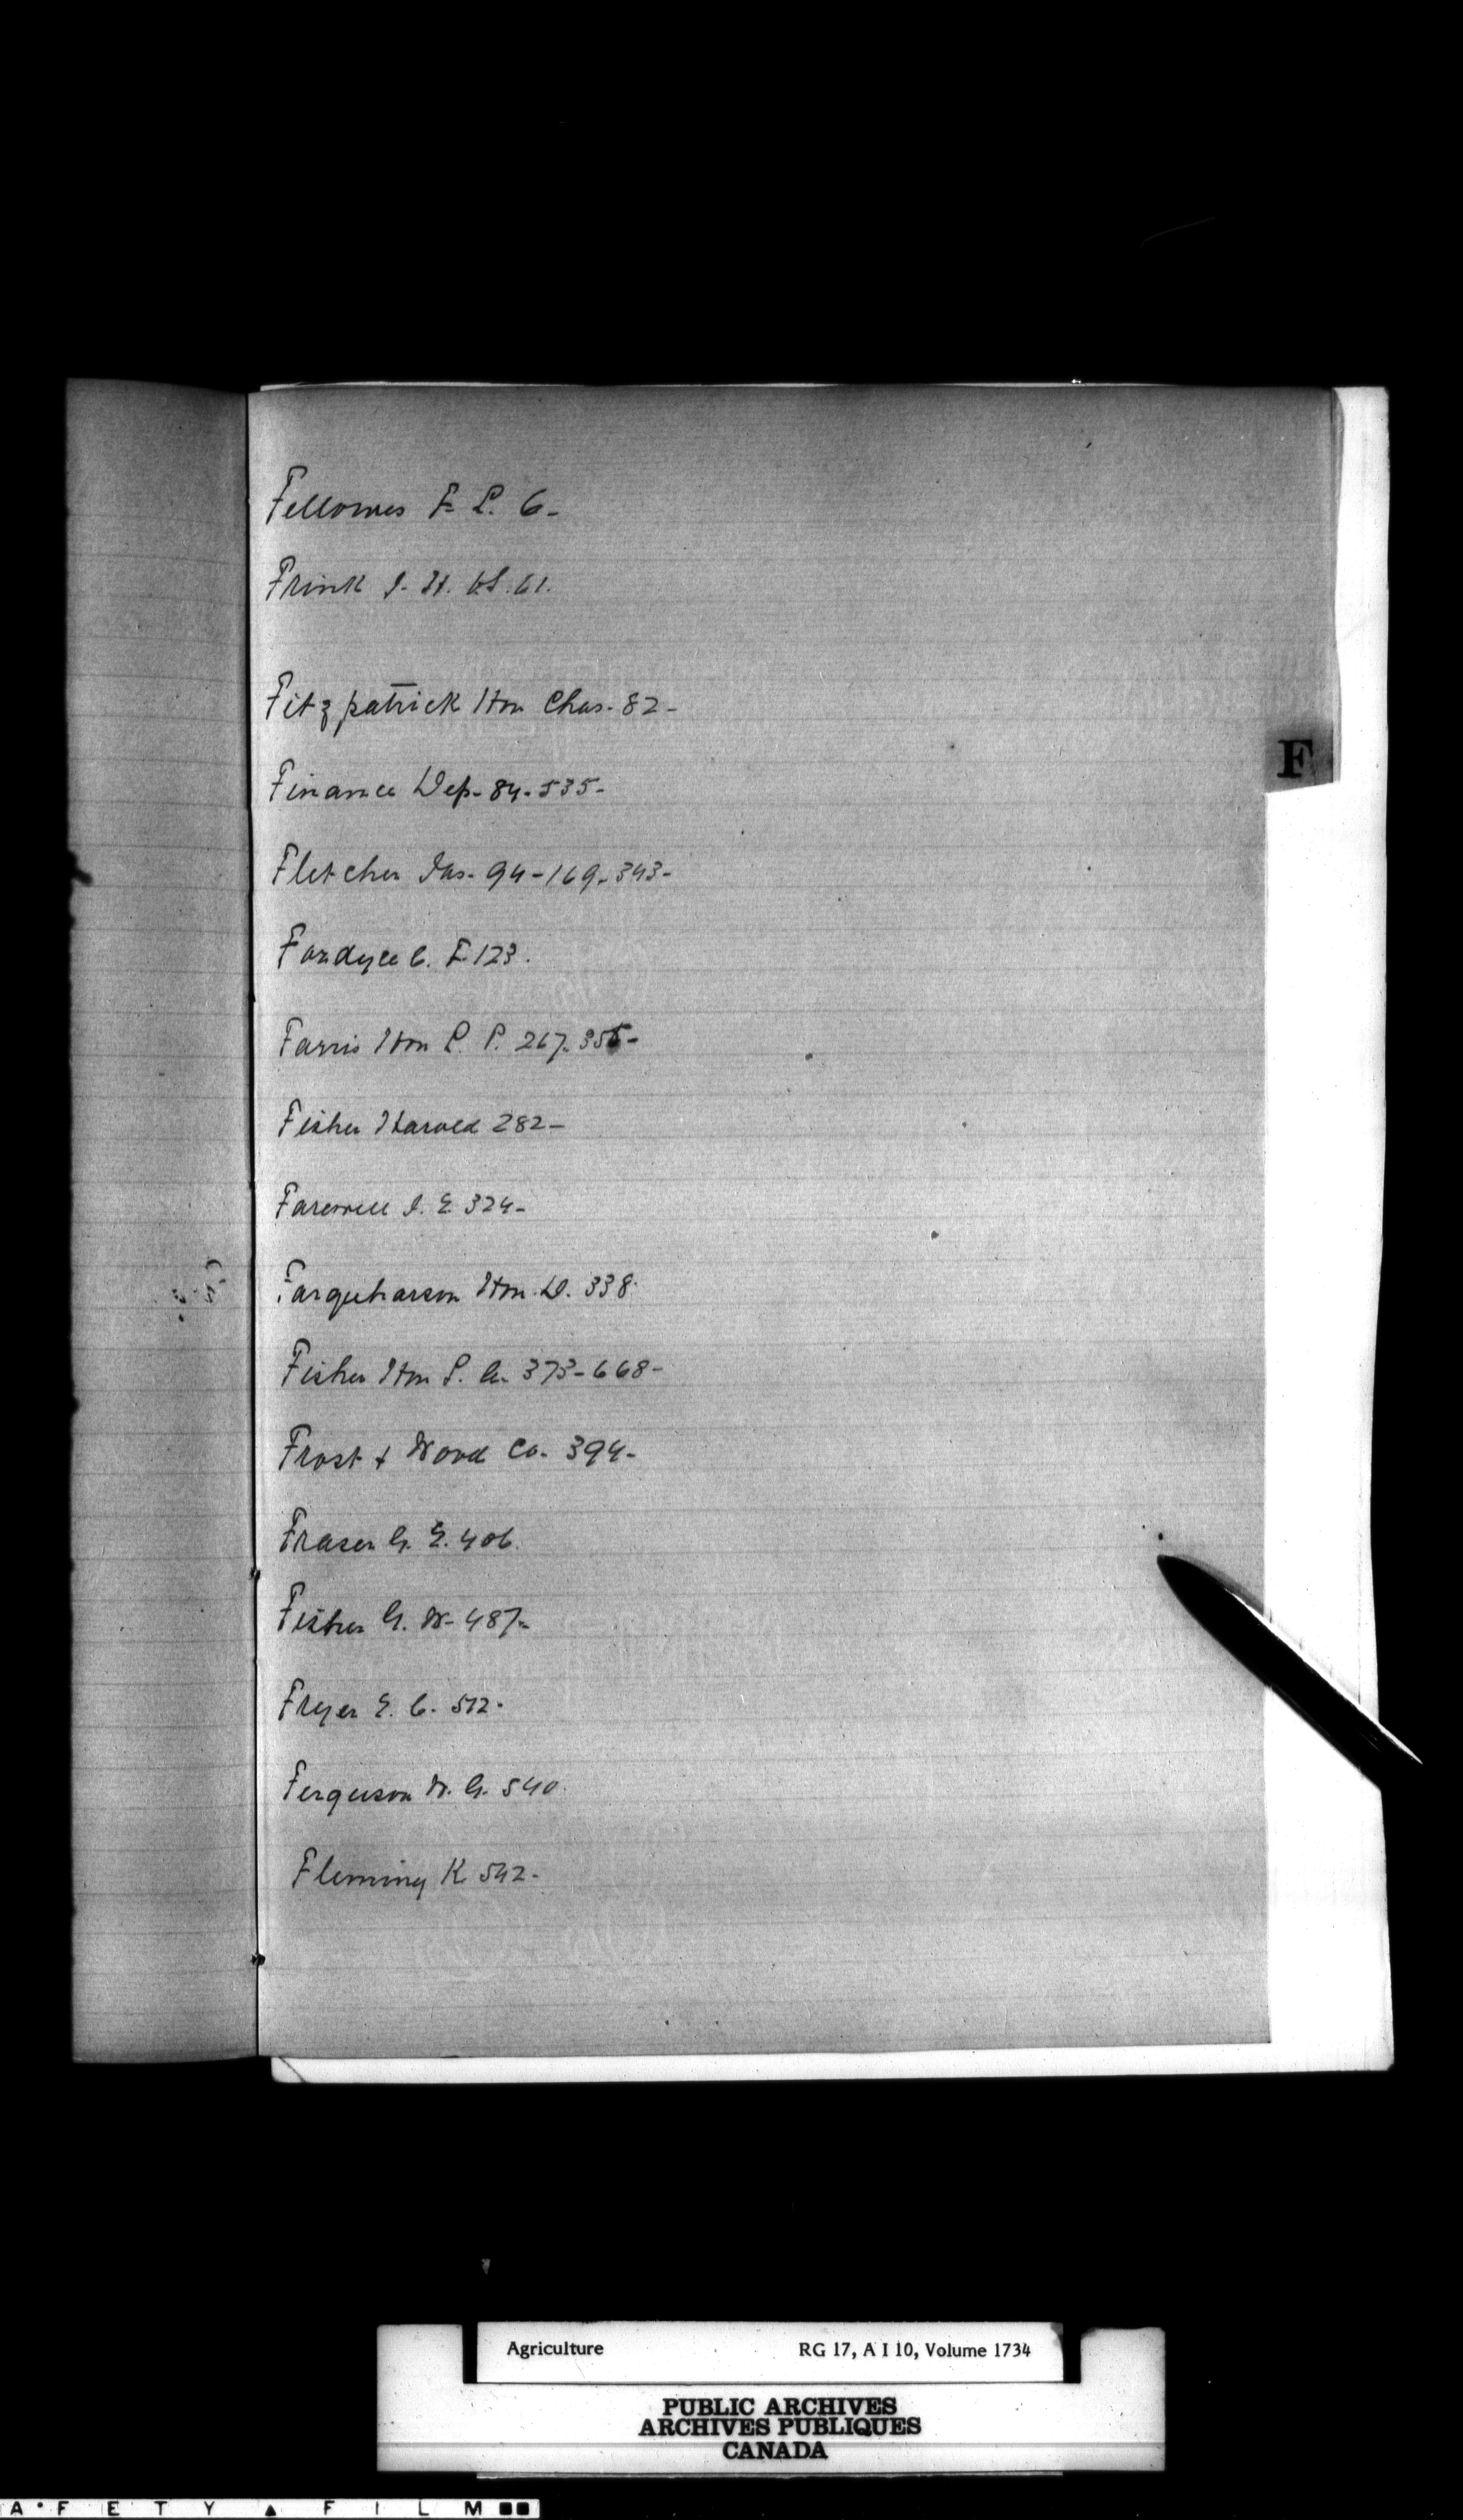 Fellowes F. L. 6-
Frink J. H. V.S. 61.
Fitzpatrick Hon Chas. 82-
F
Finance Dep- 84-535-
Fletcher Jas- 94-169-343-
Fordyce C. F 123.
Farris Hon L. P. 267-355-
Fisher Harold 282-
Farewell J. E 324-
Farquharson Hon. D. 338
Fisher Hon S. A. 373-668-
Frost & Wood Co- 394-
Fraser G. E. 406.
Fisher G. W- 487-
Fryer E. C. 512.
Ferguson W. G. 540.
Fleming K 542-
Agriculture RG 17, A I 10, Volume 1734
PUBLIC ARCHIVES
ARCHIVES PUBLIQUES
CANADA
A • F E T Y ▲ F I L M ■■